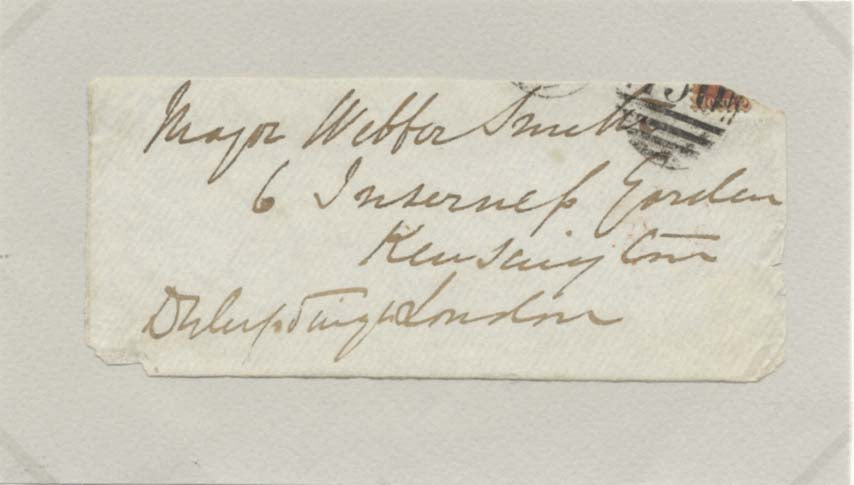 Major Webber Smith
6 Inverness Garden
Kensington
London